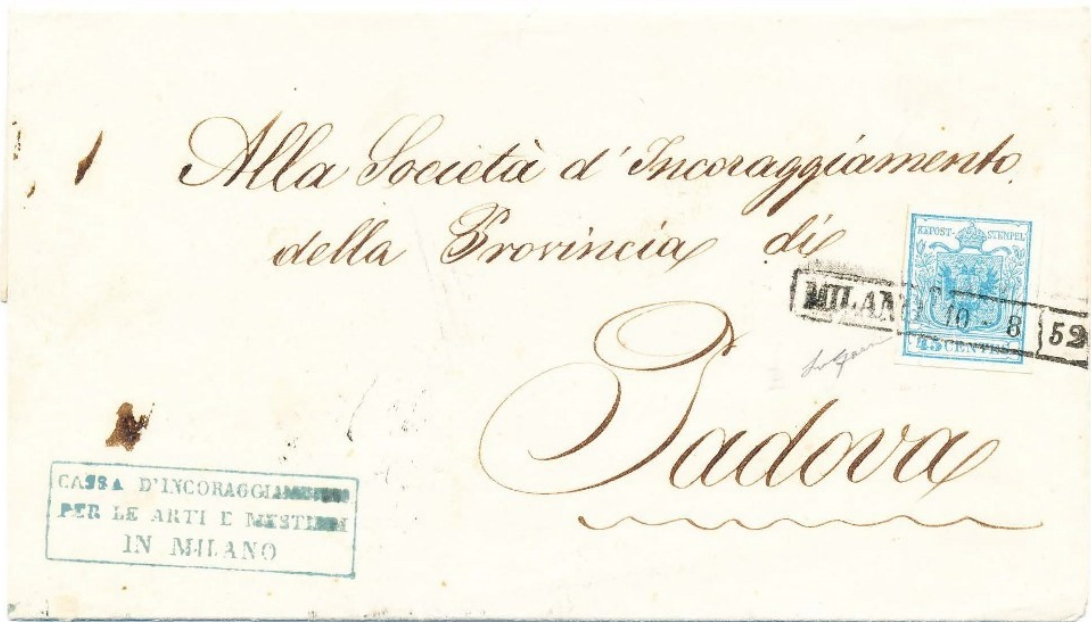 Alla Società d'Incoraggiamento
della Provincia di
Padova
KKPOST-STEMPEL
45 CENTES
MILANO 10 - 8 52
CASSA D'INCORAGGIAMENTO
PER LE ARTI E MESTIERI
IN MILANO